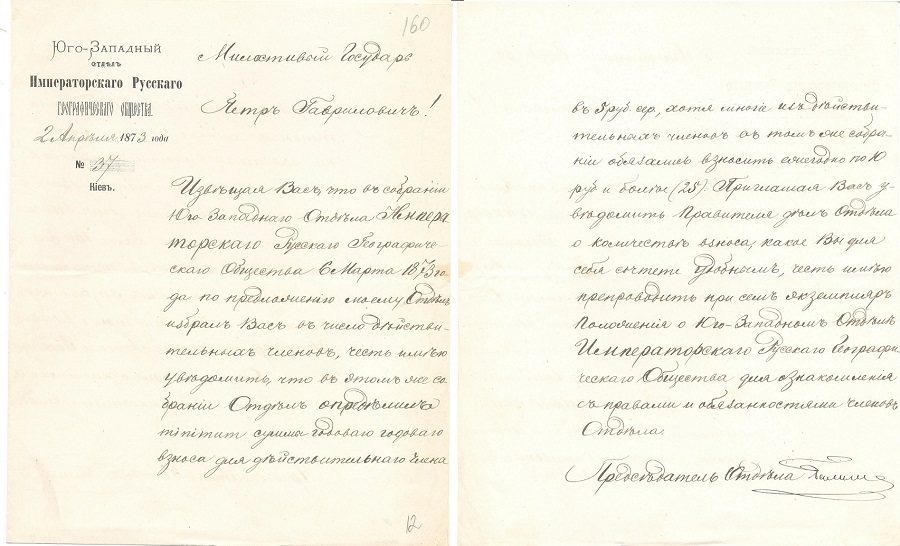 160
Юго-Западный
отдѣлъ
Императорскаго Русскаго
географическаго общества.
2 Апрѣля 1873 года
№ 37
Кіевъ.
Милостивый Государь
Петръ Гавриловичъ!
Извѣщая Васъ, что въ собраніи
Юго-Западнаго Отдѣла Импера
торскаго Русскаго Географиче
скаго Общества 6 Марта 1873 го
да по предложенію моему Отдѣлъ
избралъ Васъ въ число дѣйстви-
тельныхъ членовъ, честь имѣю
увѣдомить, что въ этомъ же со
браніи Отдѣломъ опредѣлилъ
minimum сумма годоваго годоваго
взноса для дѣйствительнаго члена
12
въ 5 руб сер, хотя многіе изъ дѣйстви-
тельныхъ членовъ въ томъ же собра-
ніи обязались взносить ежегодно по 10
руб и болѣе (25). Приглашая Васъ у-
вѣдомить Правителя дѣлъ Отдѣла
о количествѣ взноса, какое Вы для
себя сочтете удобнымъ, честь имѣю
препроводить при семъ экземпляръ
Положенія о Юго-Западномъ Отдѣлѣ
Императорскаго Русскаго Географи-
ческаго Общества для ознакомленія
съ правами и обязанностями членовъ
Отдѣла.
Предсѣдатель Отдѣла